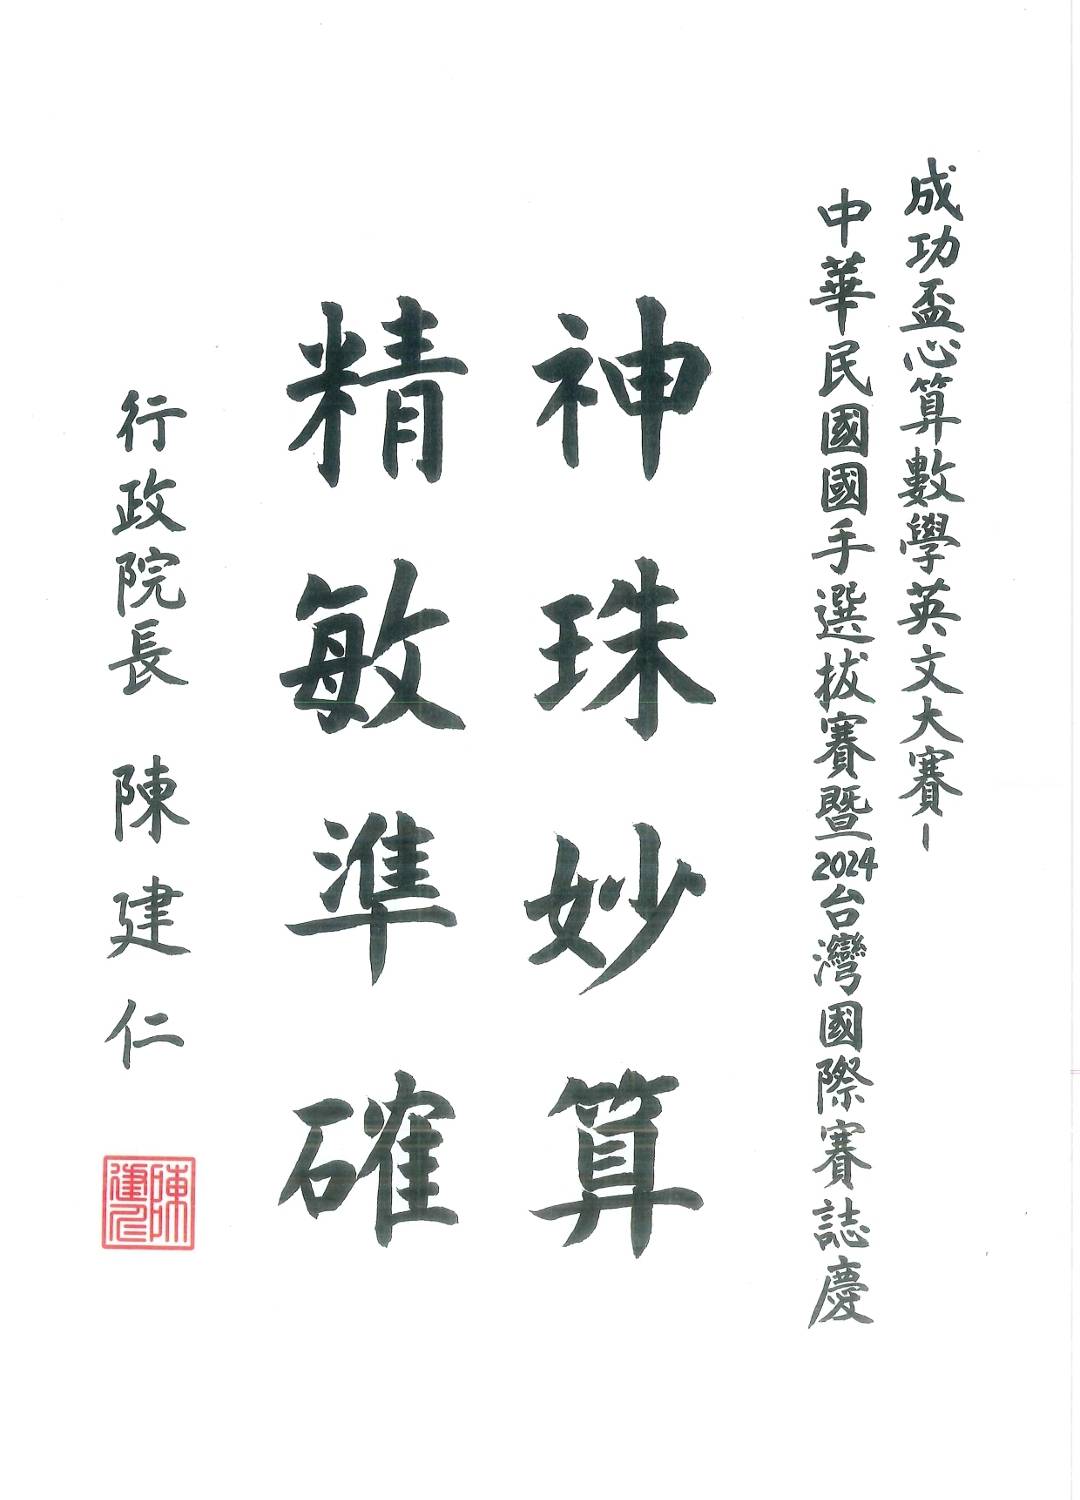 成功盃心算數學英文大賽-
中華民國國手選拔賽暨2024台灣國際賽誌慶
神珠妙算
精敏準確
行政院長 陳建仁
陳建仁